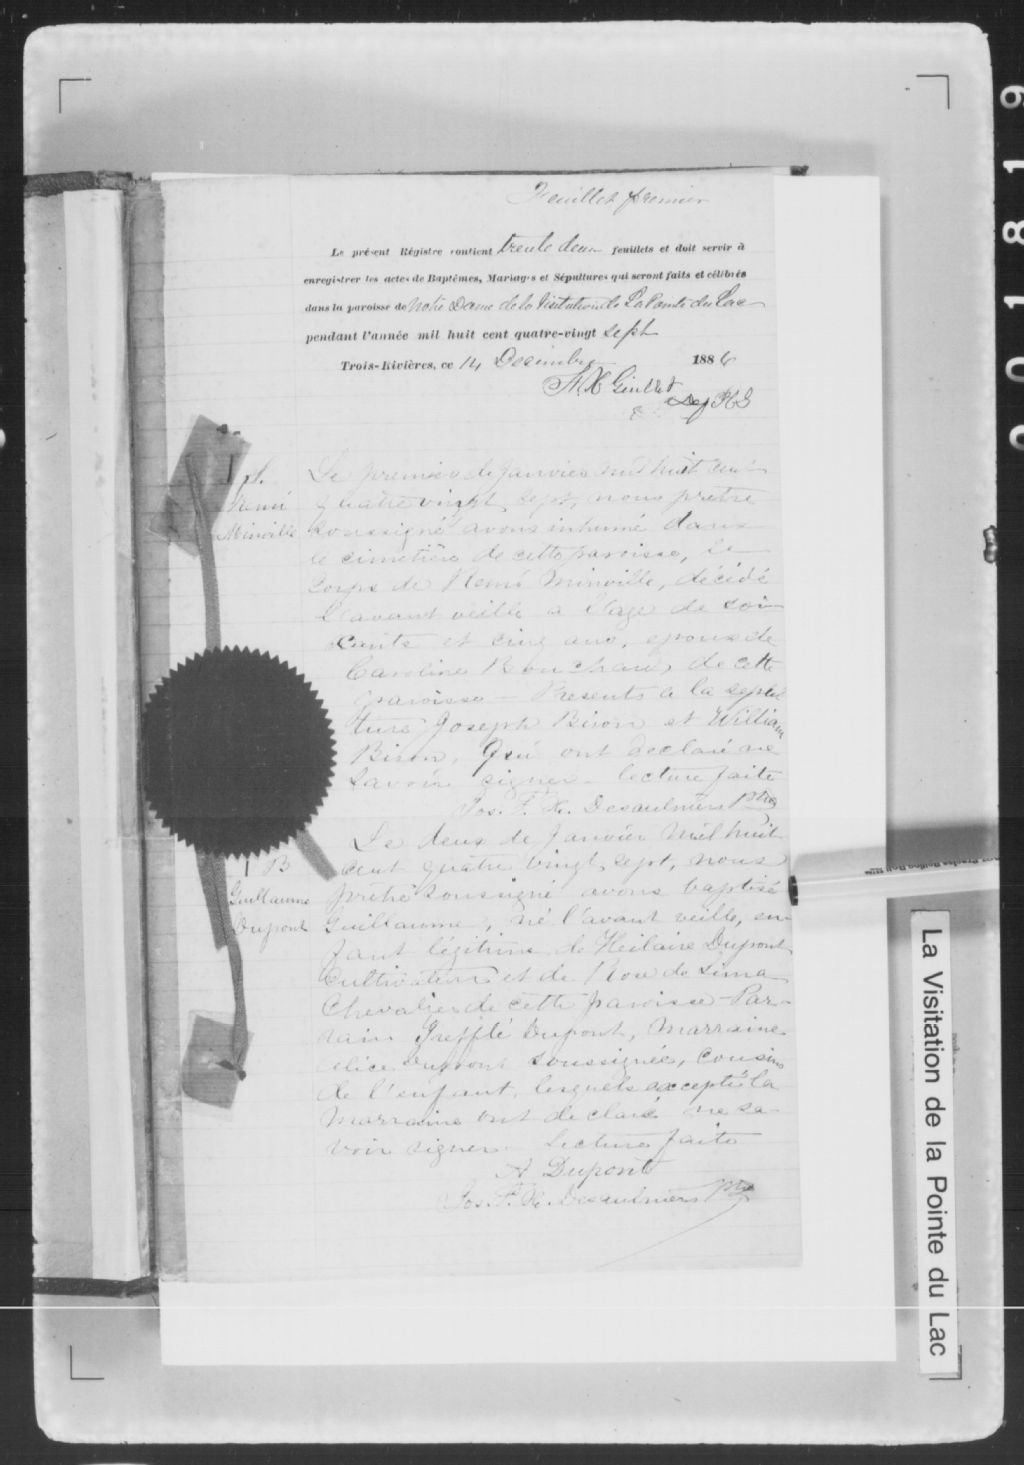 Feuillet premier
Le présent Régistre contient trente deux feuillets et doit servir à
enregistrer les actes de Baptêmes, Mariages et Sépultures qui seront faits et célébrés
dans la paroisse de Notre Dame de la Visitation de La Pointe du Lac
pendant l'année mil huit cent quatre-vingt sept
Trois-Rivières, ce 14 Decembre 1886
Dep P C S
1 S.
Rémi
Minville
Le premier de janvier mil huit cent
quatre vingt sept, nous prêtre
soussigné avons inhumé dans
le cimetière de cette paroisse, le
corps de Remi Minville, décédé
l'avant veille a l'age de soi-
xante et cinq ans, epoux de
Caroline de cette
paroisse — Presents a la sepul
ture Joseph Biron et William
Biron, Qui ont declaré ne
savoir signer — lecture faite
Jos. F. R. Desaulniers Ptre
Le deux de Janvier mil huit
cent quatre vingt sept, nous
prêtre soussigné avons baptisé
Guillaume, né l'avant veille, en-
fant légitime de Heilaire Dupont
Cultivateur et de Rose de Lima
Chevalier de cette paroisse — Par-
rain Dupont, Marraine
Alice Dupont soussignée, cousins
de l'enfant, lesquels excepté la
Marraine ont declaré ne sa-
voir signer. Lecture faite
A Dupont
Jos. F. R. Desaulniers Ptre
1 B
Guillaume
Dupont
La Visitation de la Pointe du Lac